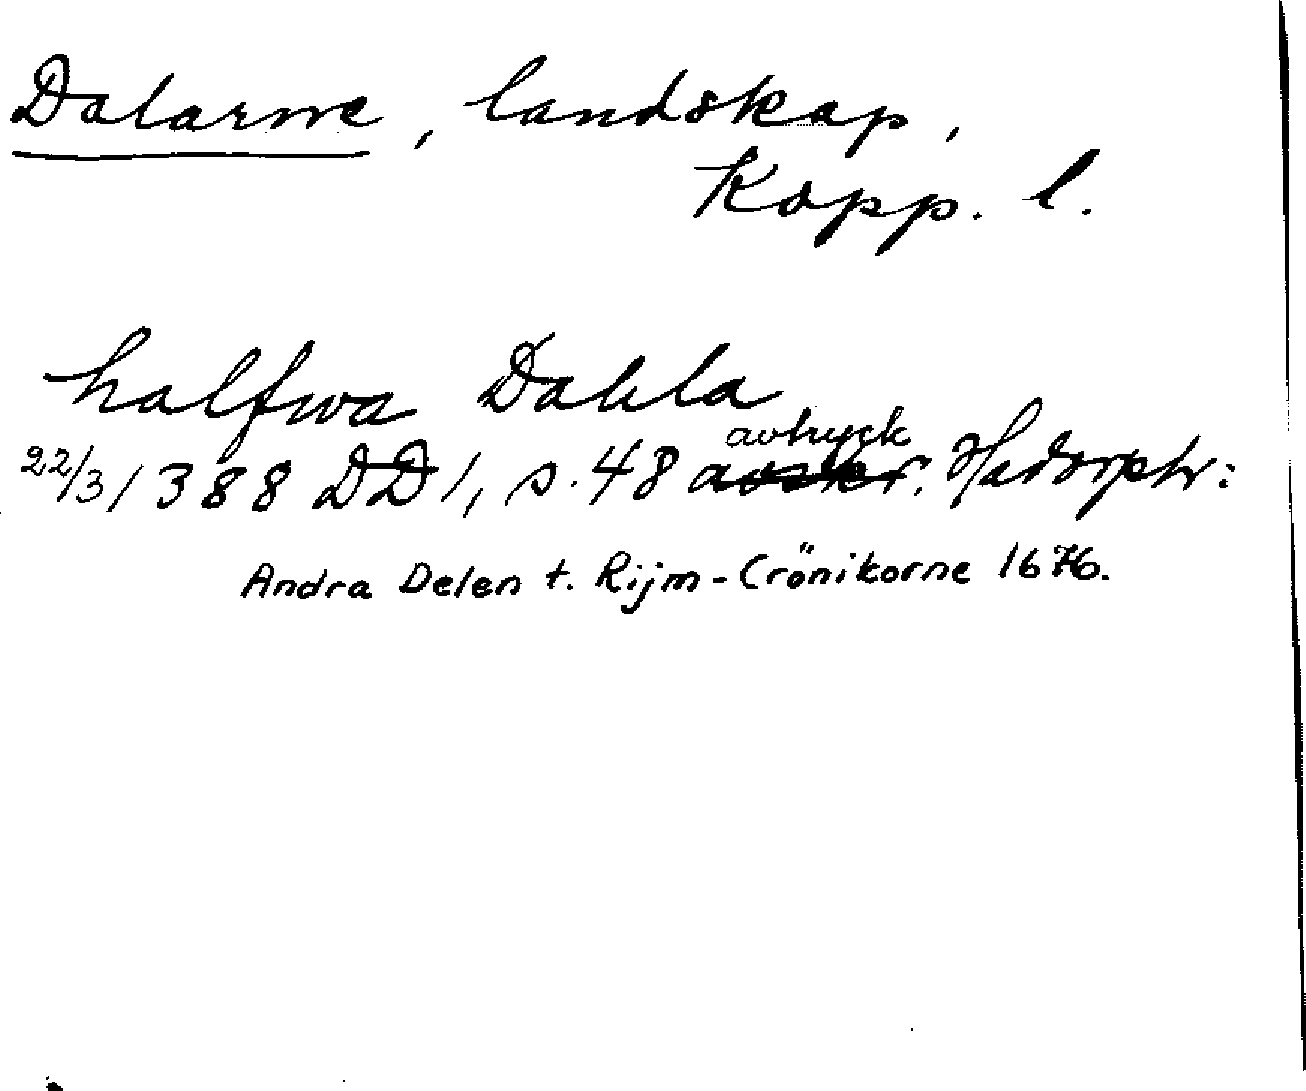 Dalarne, landskap,
Kopp. l.
halfwa Dahla
avtryck
22/3 1388 DD 1, s. 48 Hadorph:
Andra Delen t. Rijm-Crönikorne 1676.